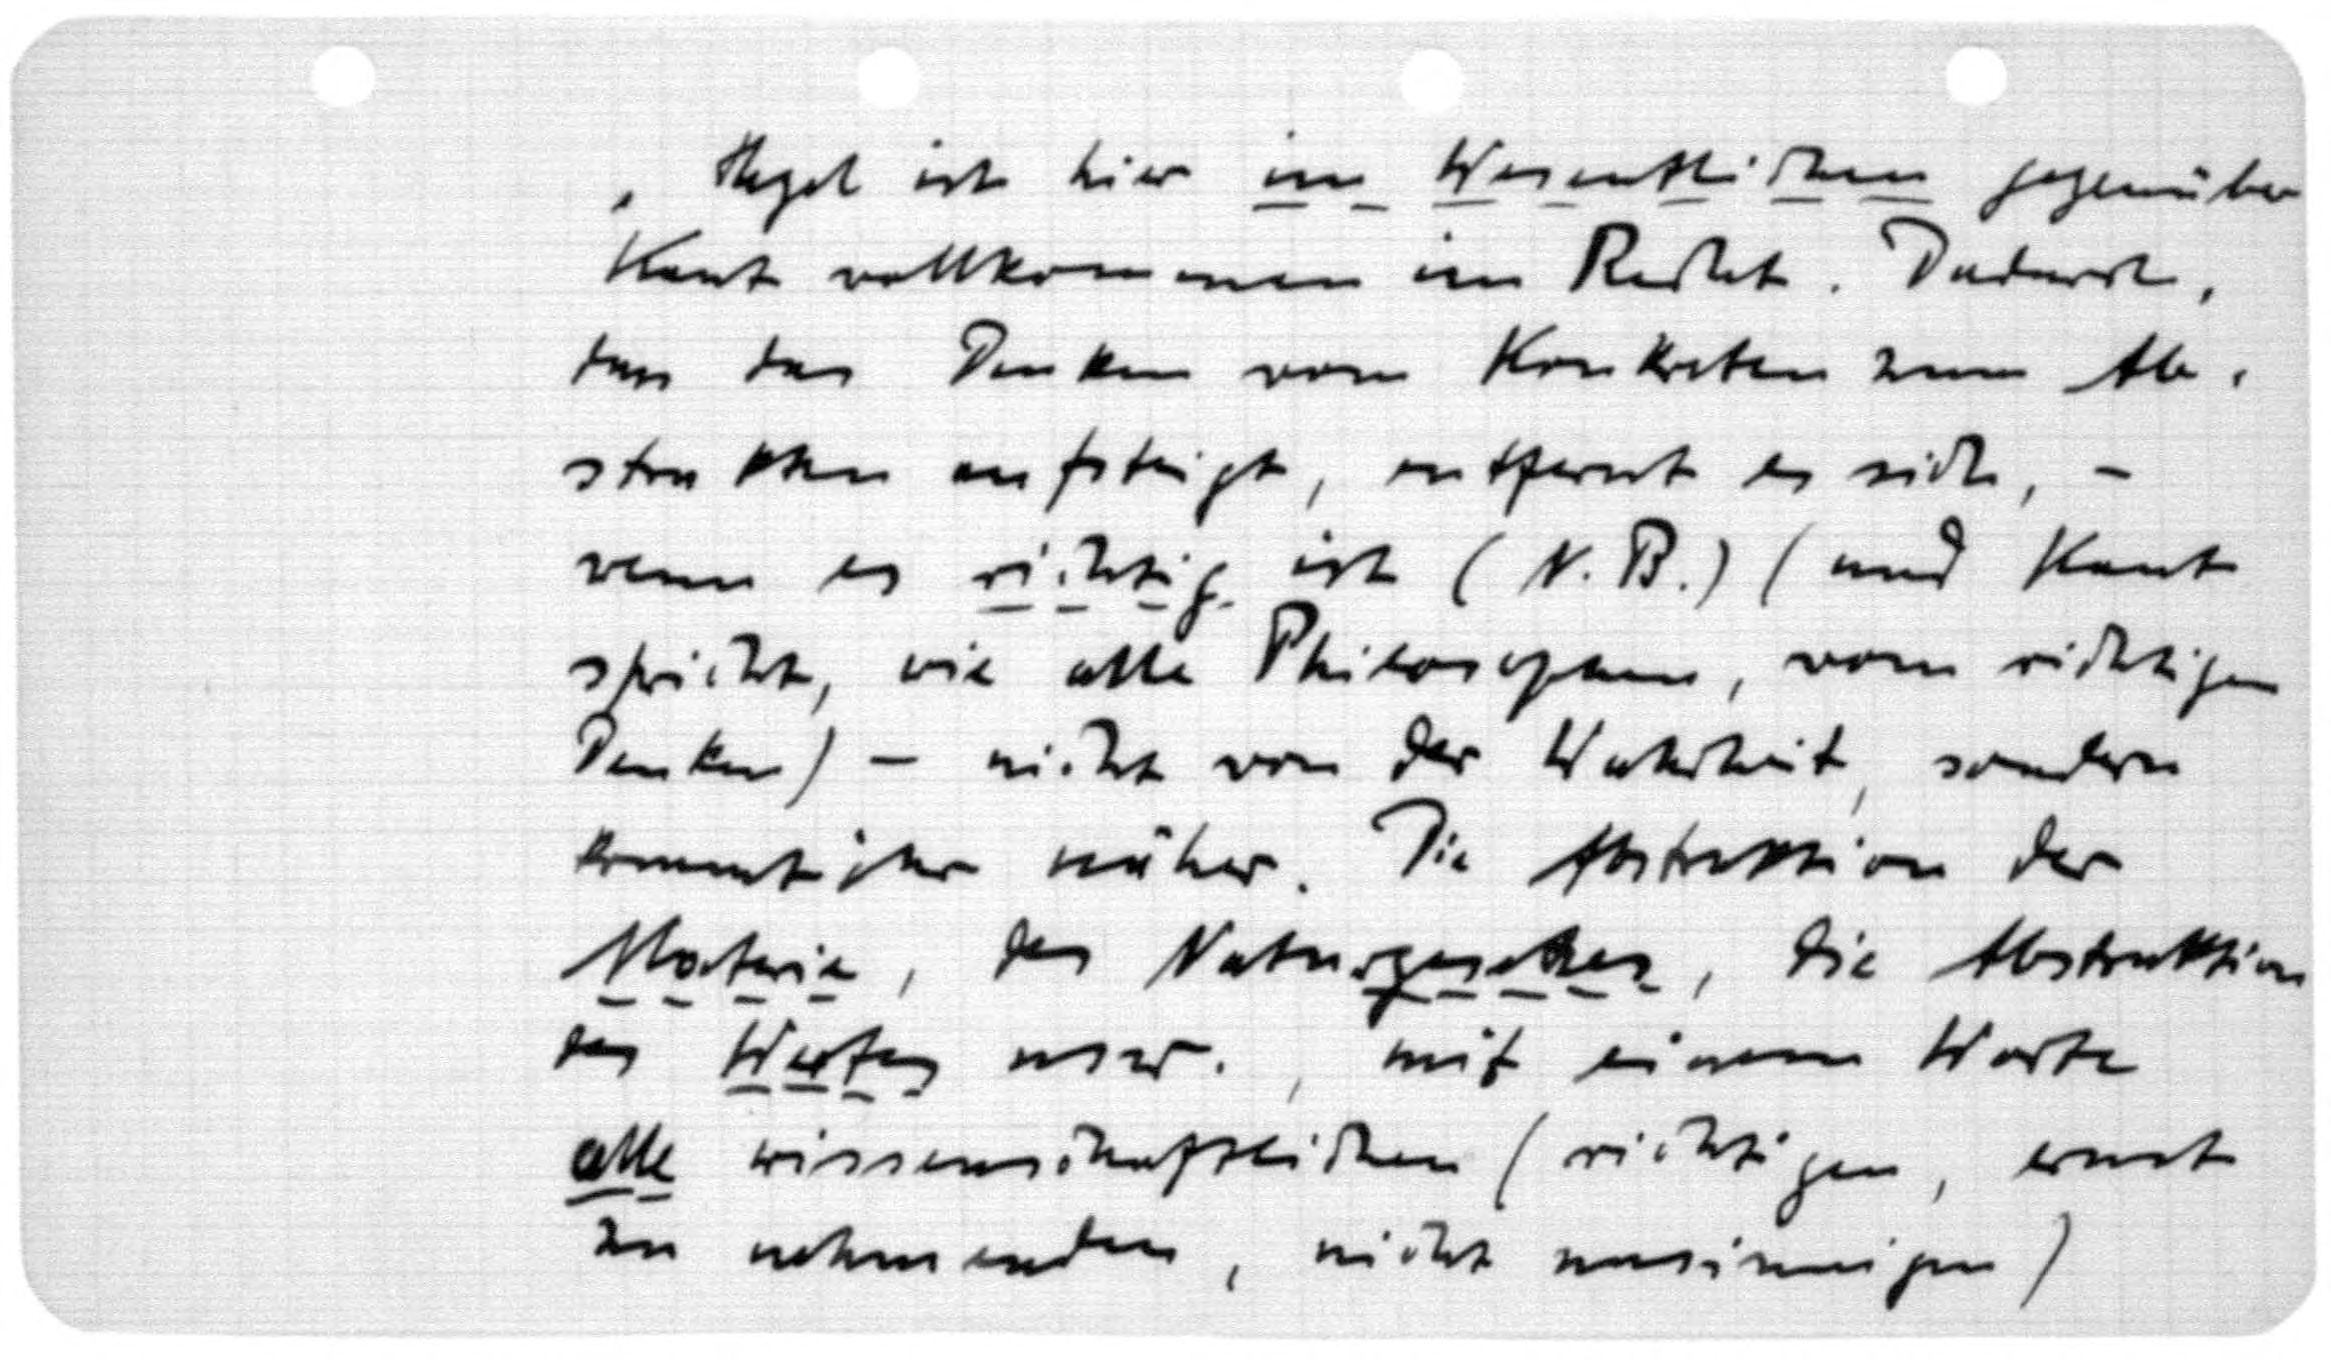 „ Hegel ist hier im Wesentlichen gegenüber
Kant vollkommen im Recht. Dadurch,
dass das Denken vom Konkreten zum Ab-
strakten aufsteigt, entfernt es sich, –
wenn es richtig ist (N.B.) (und Kant
spricht, wie alle Philosophen, vom richtigen
Denken) – nicht von der Wahrheit, sondern
kommt ihr näher. Die Abstraktion der
Materie, des Naturgesetzes, die Abstraktion
des Wertes usw., mit einem Worte
alle wissenschaftlichen (richtigen, ernst
zu nehmenden, nicht unsinnigen)